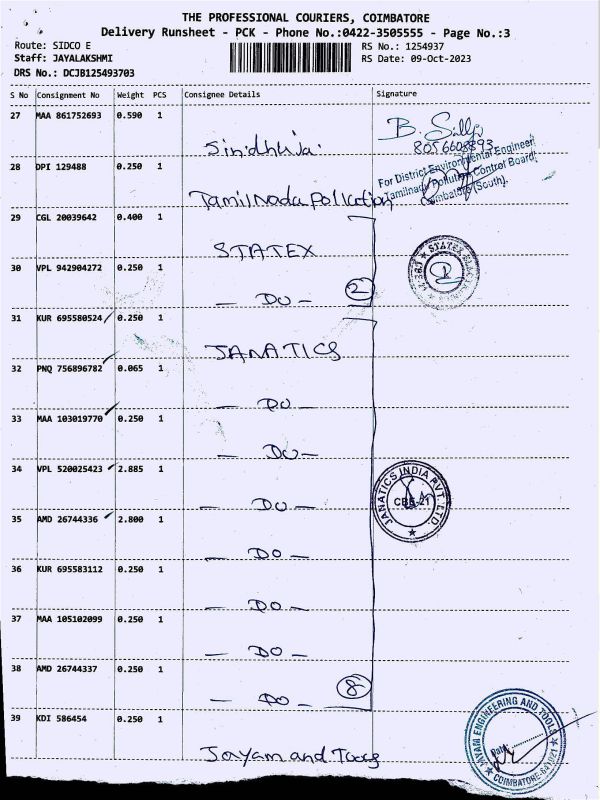 THE PROFESSIONAL COURIERS, COIMBATORE
Delivery Runsheet - PCK - Phone No.:0422-3505555 - Page No.:3
Route: SIDCO E
Staff: JAYALAKSHMI
DRS No.: DCJB125493703
RS No.: 1254937
RS Date: 09-Oct-2023
S No Consignment No Weight PCS Consignee Details Signature
27 MAA 861752693 0.590 1
Sindhuja. B. 8056608893
28 DPI 129488 0.250 1
For District Environmental Engineer
Tamilnadu Pollution Control Board,
Coimbatore (South).
Tamilnada pollution
29 CGL 20039642 0.400 1
STATEX
30 VPL 942904272 0.250 1
— DO — 2
STATEX
31 KUR 695580524 0.250 1
JANATICS
32 PNQ 756896782 0.065 1
— DO —
33 MAA 103019770 0.250 1
— DO —
34 VPL 520025423 2.885 1
— DO —
JANATICS INDIA PVT. LTD.
CBE-21
35 AMD 26744336 2.800 1
— DO —
36 KUR 695583112 0.250 1
— DO —
37 MAA 105102099 0.250 1
— DO —
38 AMD 26744337 0.250 1
— DO — 8
39 KDI 586454 0.250 1
Jayam and Toos
JAYAM ENGINEERING AND TOOLS
Date:
COIMBATORE-641021